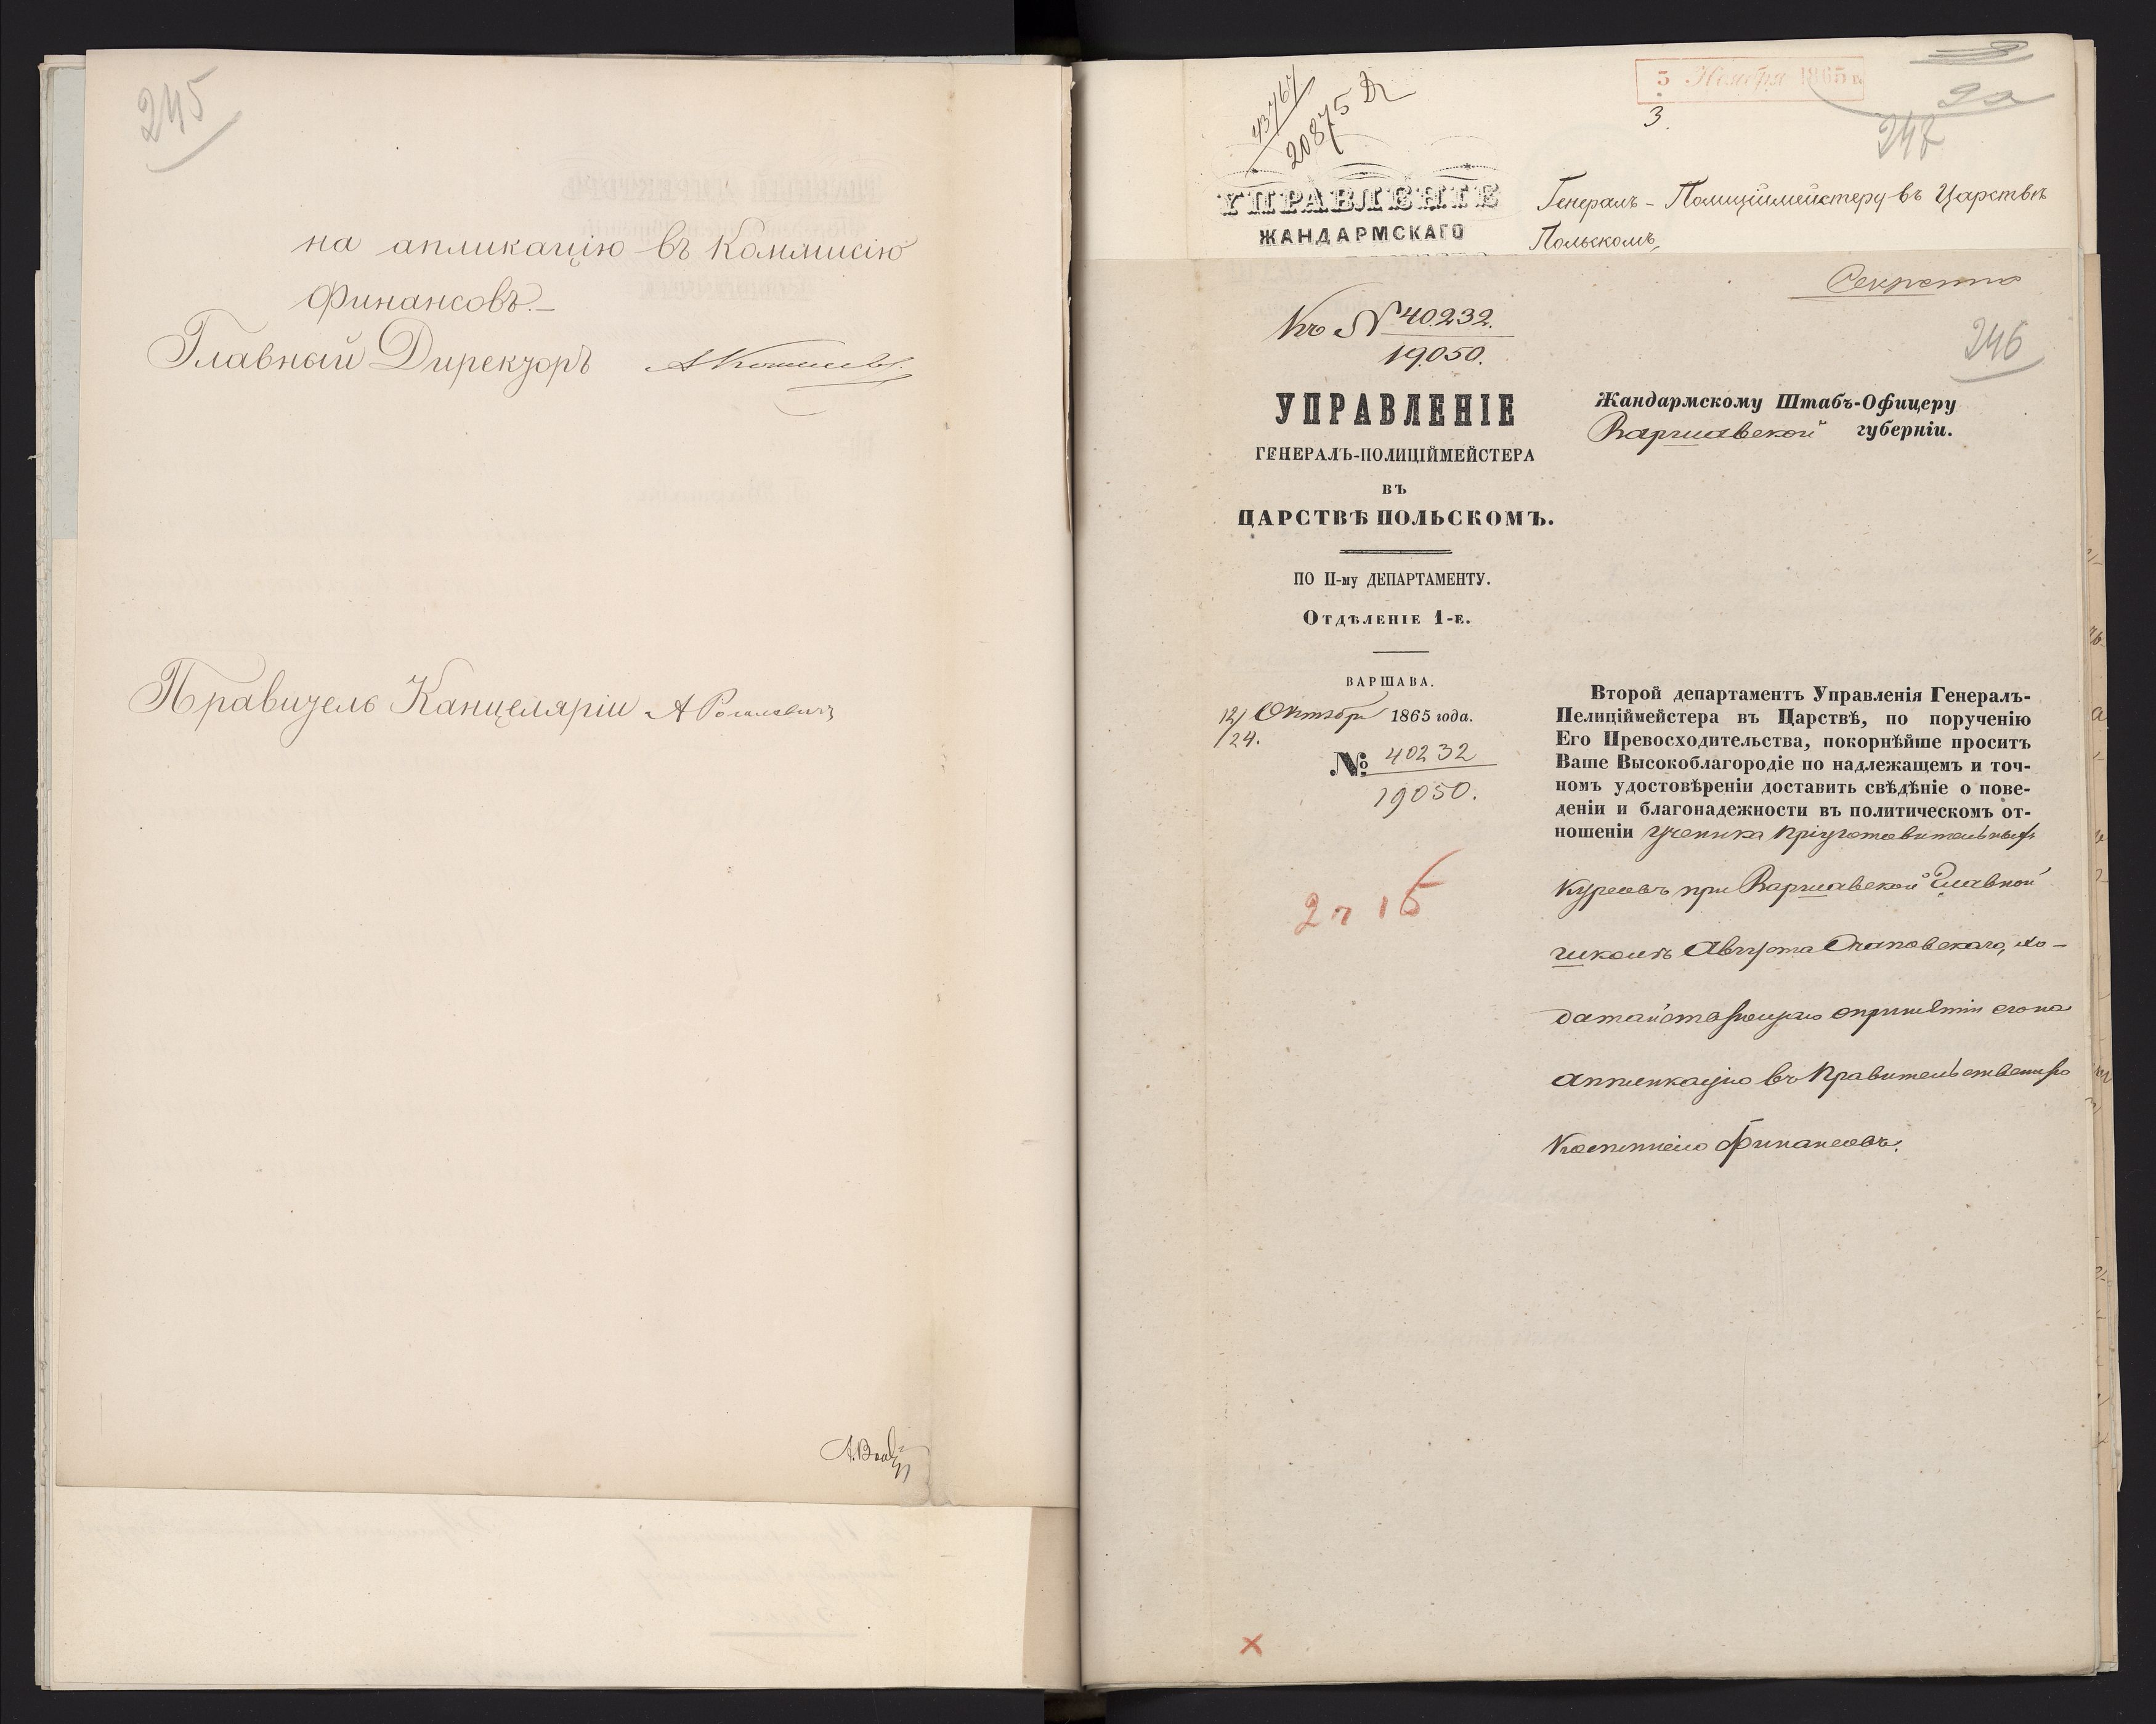 245
на апликацію въ Коммисію
Финансовъ.—
Главный Директоръ
Правитель Канцеляріи
5 Ноября 1865 г.
3.
20875
247
УПРАВЛЕНІЕ
ЖАНДАРМСКАГО
Генералъ-Полиціймейстеру въ Царствѣ
Польскомъ,
Секретно
246
Къ № 40232.
19050.
УПРАВЛЕНІЕ
ГЕНЕРАЛЪ-ПОЛИЦІЙМЕЙСТЕРА
ВЪ
ЦАРСТВѢ ПОЛЬСКОМЪ.
ПО II-му ДЕПАРТАМЕНТУ.
Отдѣленіе 1-е.
ВАРШАВА.
12/24. Октября 1865 года.
№ 40232
19050.
Жандармскому Штабъ-Офицеру
Варшавской губерніи.
Второй департаментъ Управленія Генералъ-
Пелиціймейстера въ Царствѣ, по порученію
Его Превосходительства, покорнѣйше проситъ
Ваше Высокоблагородіе по надлежащемъ и точ-
номъ удостовѣреніи доставить свѣдѣніе о пове-
деніи и благонадежности въ политическомъ от-
ношеніи ученика Пріуготовительныхъ
Курсовъ при Варшавской Главной
школѣ Августа хо-
датайствующаго о принятіи его на
аппликацію въ Правительственную
Коммиссію Финансовъ.